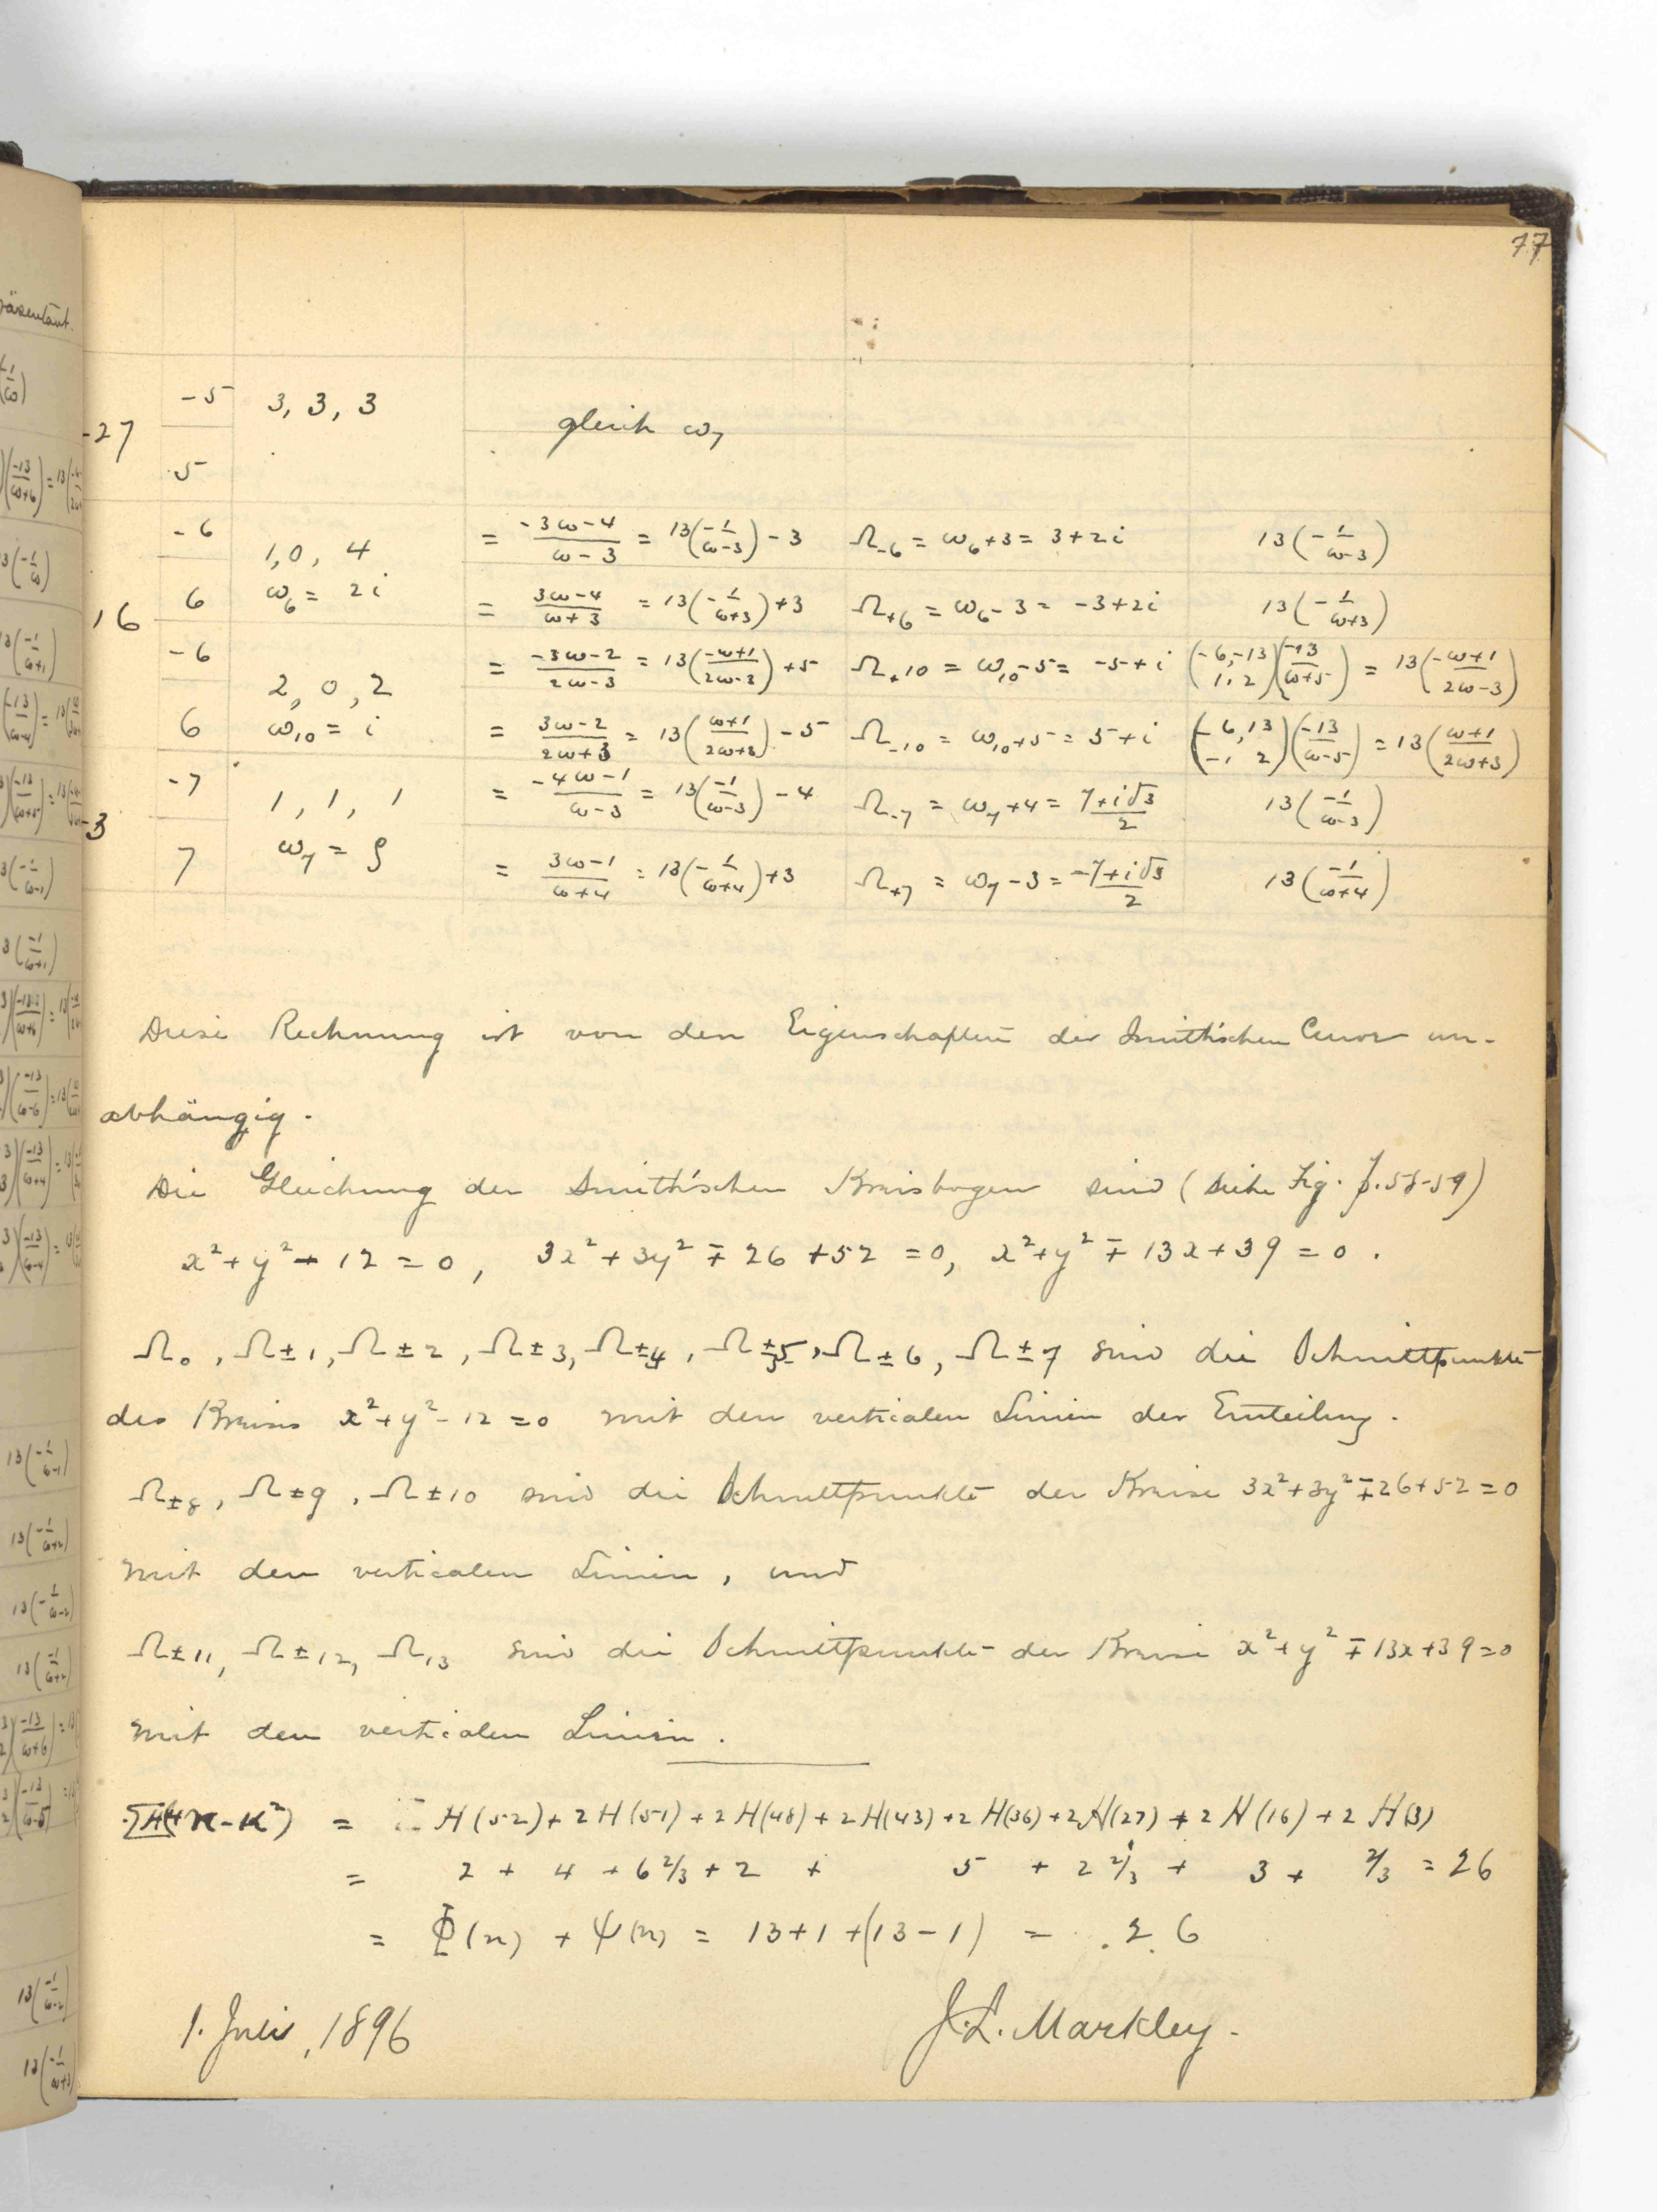 77
-27 -5 3, 3, 3 gleich ω₇
5
-6 1, 0, 4 = (-3ω-4)/(ω-3) = 13(-1/(ω-3)) - 3 Ω₋₆ = ω₆+3 = 3+2i 13(-1/(ω-3))
16 6 ω₆ = 2i = (3ω-4)/(ω+3) = 13(-1/(ω+3)) + 3 Ω₊₆ = ω₆-3 = -3+2i 13(-1/(ω+3))
-6 2, 0, 2 = (-3ω-2)/(2ω-3) = 13((-ω+1)/(2ω-3)) + 5 Ω₊₁₀ = ω₁₀-5 = -5+i (-6,-13 / 1, 2)(-13/(ω+5)) = 13((-ω+1)/(2ω-3))
6 ω₁₀ = i = (3ω-2)/(2ω+3) = 13((ω+1)/(2ω+3)) - 5 Ω₋₁₀ = ω₁₀+5 = 5+i (-6, 13 / -1, 2)(-13/(ω-5)) = 13((ω+1)/(2ω+3))
-3 -7 1, 1, 1 = (-4ω-1)/(ω-3) = 13(-1/(ω-3)) - 4 Ω₋₇ = ω₇+4 = (7+i√3)/2 13(-1/(ω-3))
7 ω₇ = ρ = (3ω-1)/(ω+4) = 13(-1/(ω+4)) + 3 Ω₊₇ = ω₇-3 = (-7+i√3)/2 13(-1/(ω+4))
Diese Rechnung ist von den Eigenschaften der Smith'schen Curve un-
abhängig.
Die Gleichung der Smith'schen Kreisbogen sind (siehe Fig. p. 58-59)
x²+y²-12=0, 3x²+3y²∓26+52=0, x²+y²∓13x+39=0.
Ω₀, Ω±1, Ω±2, Ω±3, Ω±4, Ω±5, Ω±6, Ω±7 sind die Schnittpunkte
des Kreises x²+y²-12=0 mit den verticalen Linien der Einteilung.
Ω±8, Ω±9, Ω±10 sind die Schnittpunkte der Kreise 3x²+3y²∓26+52=0
mit den verticalen Linien, und
Ω±11, Ω±12, Ω13 sind die Schnittpunkte der Kreise x²+y²∓13x+39=0
mit den verticalen Linien.
ΣH(4n-κ²) = H(52)+2H(51)+2H(48)+2H(43)+2H(36)+2H(27)+2H(16)+2H(3)
= 2 + 4 + 6 2/3 + 2 + 5 + 2 2/3 + 3 + 2/3 = 26
= Φ(n) + Ψ(n) = 13+1+(13-1) = 26
1. Juli, 1896 J. L. Markley.